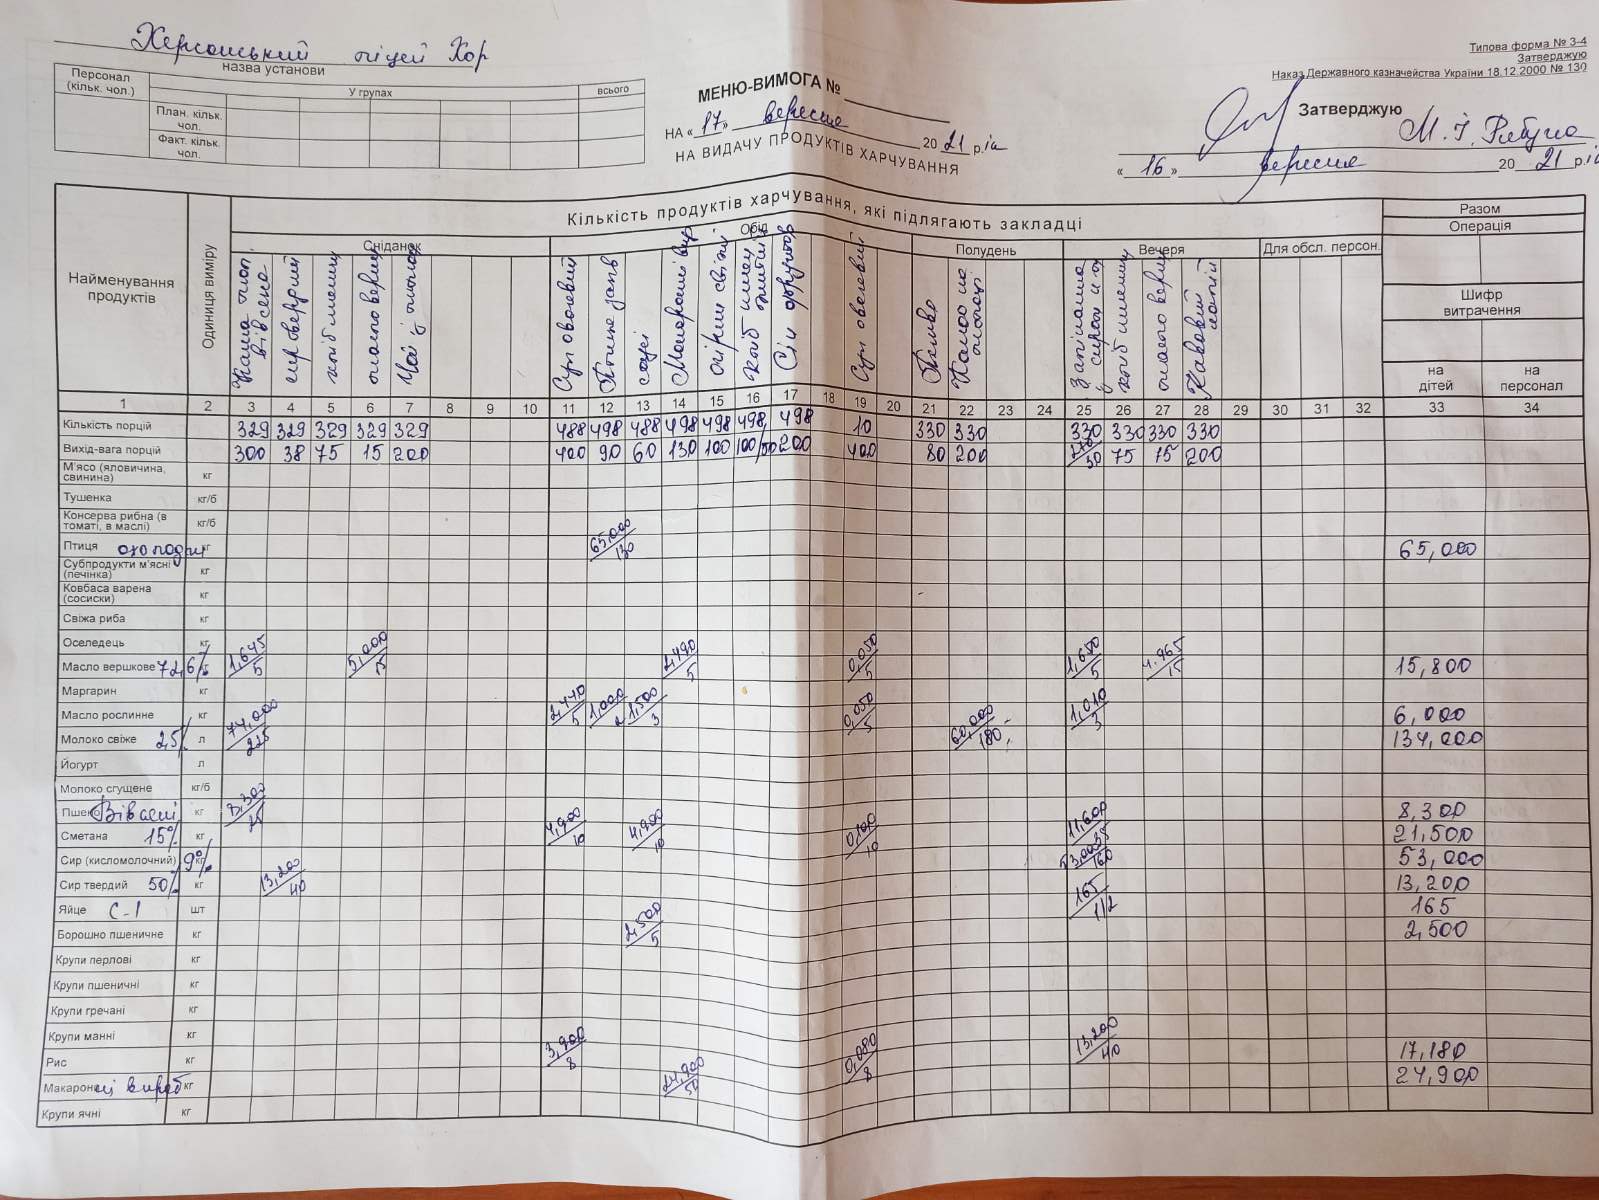 Херсонський ліцей ХОР
назва установи
Типова форма № З-4
Затверджую
Наказ Державного казначейства України 18.12.2000 № 130
Персонал (кільк. чол.) У групах всього
План. кільк. чол.
Факт. кільк. чол.
МЕНЮ-ВИМОГА №
НА «17» вересня 2021 р.
НА ВИДАЧУ ПРОДУКТІВ ХАРЧУВАННЯ
Затверджую
М. І.
«16» вересня 2021 р.
Найменування продуктів
Одиниця виміру
Кількість продуктів харчування, які підлягають закладці
Сніданок Обід Полудень Вечеря Для обсл. персон.
Разом
Операція
Шифр витрачення
на дітей на персонал
сир твердий
масло верш
Чай з молоком
Суп овочевий
соусі
Макаронні вир
огірки свіжі
Сік фруктов
Суп овочевий
Какао на молоці
Запіканка з сиру
масло верш
1 2 3 4 5 6 7 8 9 10 11 12 13 14 15 16 17 18 19 20 21 22 23 24 25 26 27 28 29 30 31 32 33 34
Кількість порцій 329 329 329 329 329 488 498 488 498 498 498 498 10 330 330 330 330 330 330
Вихід-вага порцій 300 38 75 15 200 400 90 60 130 100 100/50 200 400 80 200 /50 75 15 200
М'ясо (яловичина, свинина) кг
Тушенка кг/б
Консерва рибна (в томаті, в маслі) кг/б
Птиця охолодж кг 65,000/130 65,000
Субпродукти м'ясні (печінка) кг
Ковбаса варена (сосиски) кг
Свіжа риба кг
Оселедець кг
Масло вершкове 72,6% 1,645/5 5,000/15 2,490/5 0,050/5 1,650/5 4,965/15 15,800
Маргарин кг
Масло рослинне кг 2,440/5 1,000/2 1,500/3 0,050/5 1,010/3 6,000
Молоко свіже 2,5% л 74,000/225 60,000/180 134,000
Йогурт л
Молоко згущене кг/б
Пшено Вівсяні кг 8,300/25 8,300
Сметана 15% кг 4,900/10 4,900/10 0,100/10 11,600/35 21,500
Сир (кисломолочний) 9% кг 53,000/160 53,000
Сир твердий 50% кг 13,200/40 13,200
Яйце С-1 шт 165/1/2 165
Борошно пшеничне кг 2,500/5 2,500
Крупи перлові кг
Крупи пшеничні кг
Крупи гречані кг
Крупи манні кг
Рис кг 3,900/8 0,080/8 13,200/40 17,180
Макаронні вироб кг 24,900/50 24,900
Крупи ячні кг